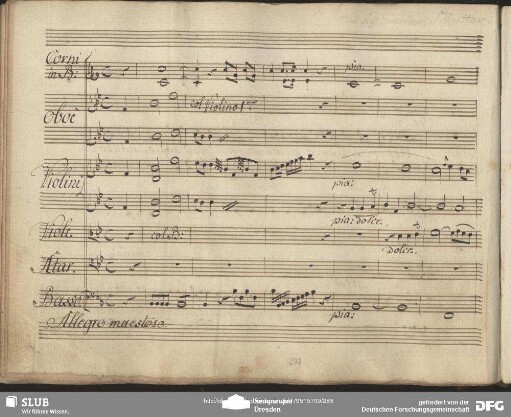 Corni
in B:
pia:
Oboe
col Violino 1mo
Violini
pia:
pia: dolce.
Viole
col B:
dolce.
Atar.
Bassi
pia:
Allegro maestoso.
SLUB
Wir führen Wissen.
Dresden
gefördert von der
Deutschen Forschungsgemeinschaft
DFG